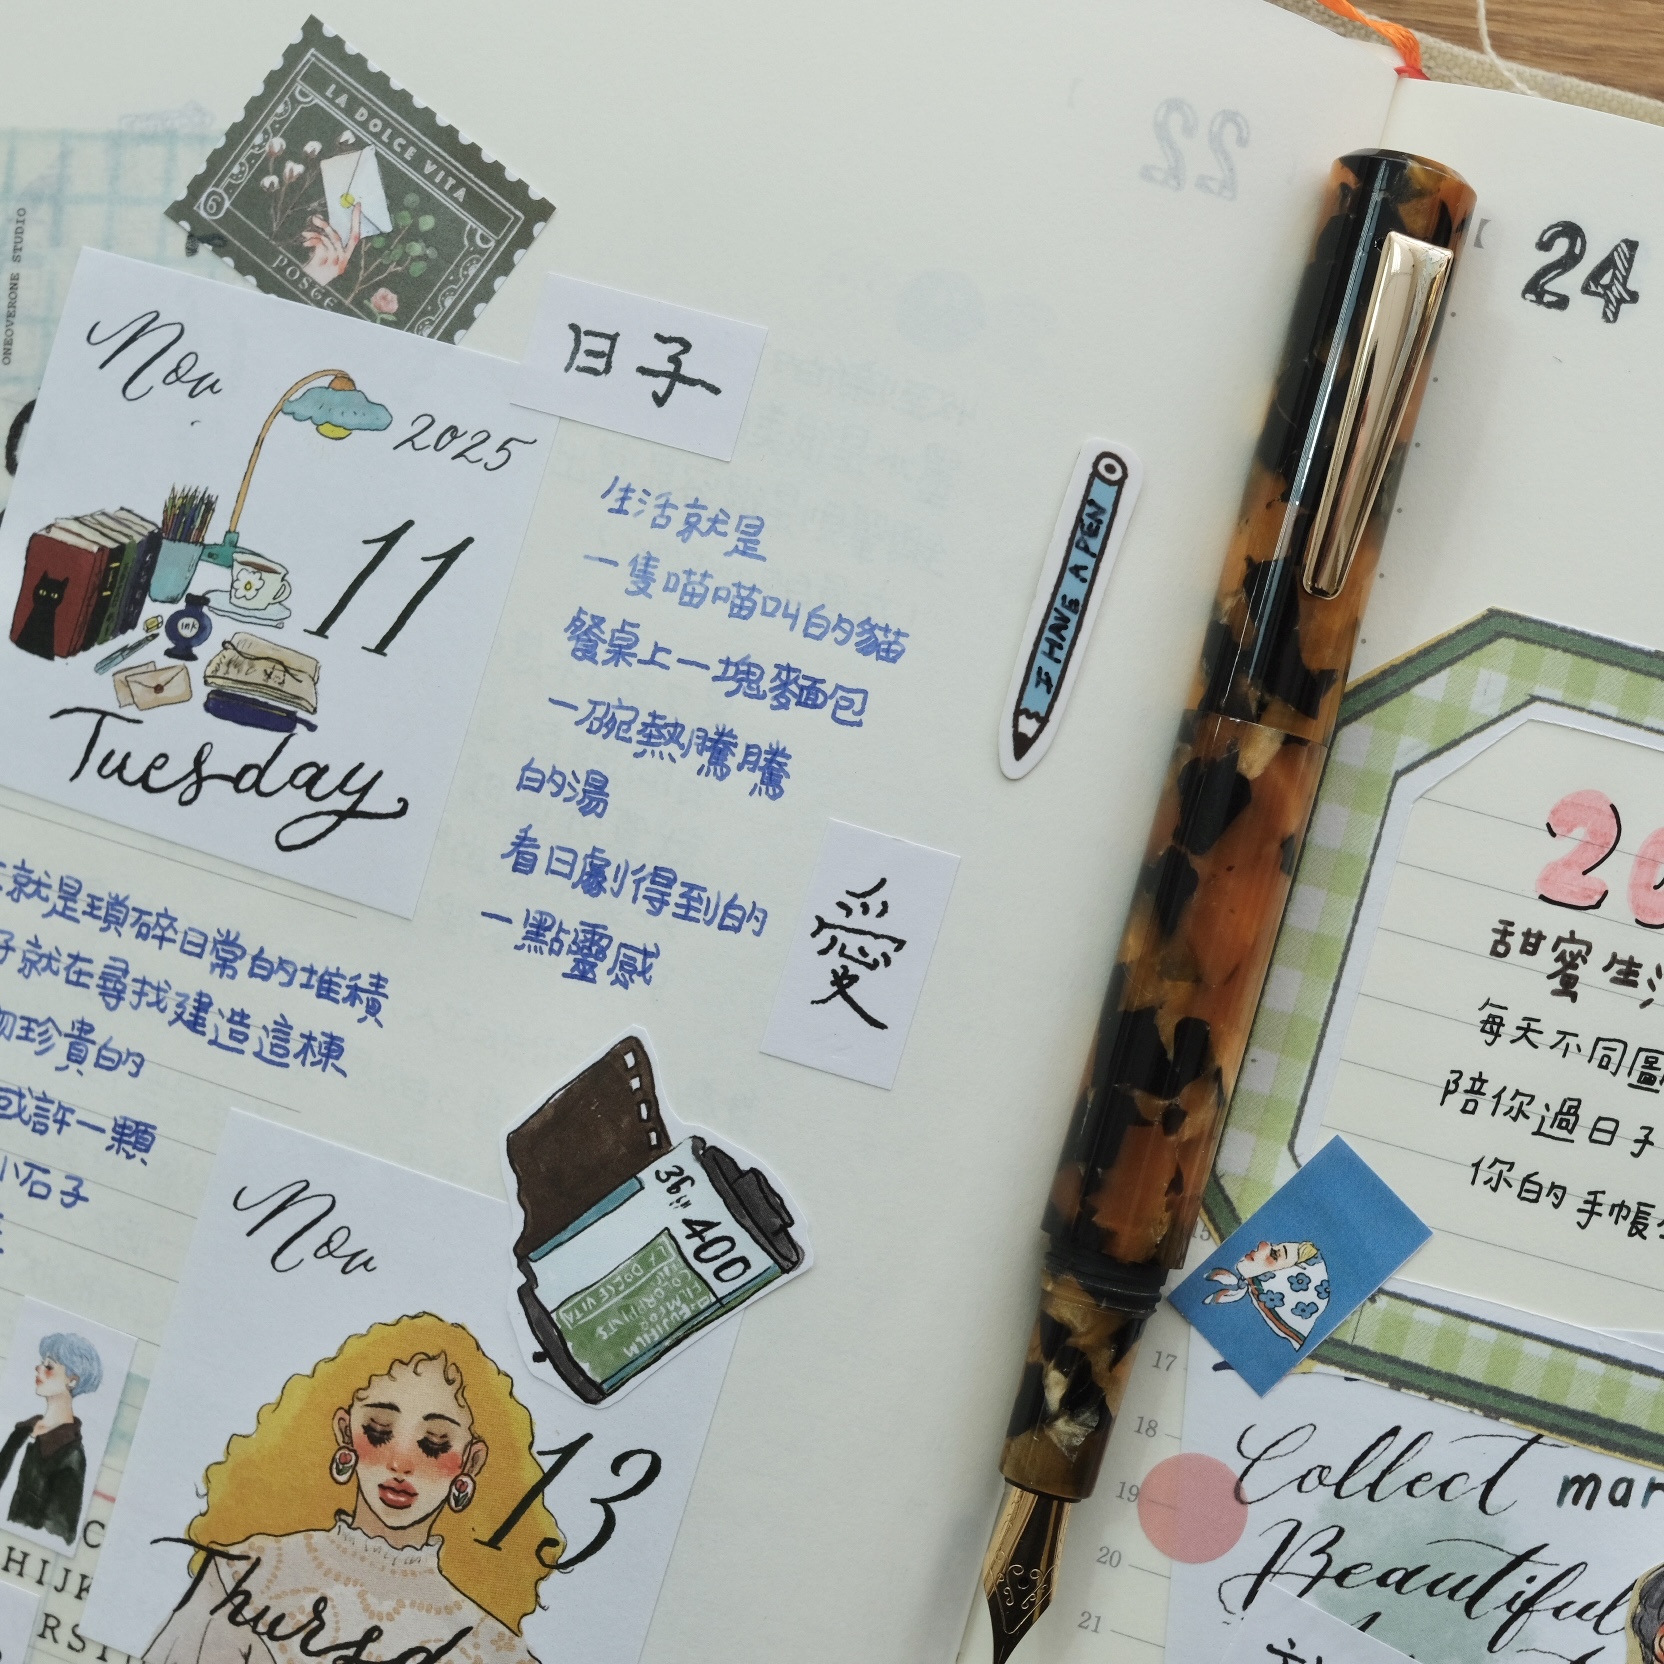 22
24
LA DOLCE VITA
6
POSTE
ONEOVERONE STUDIO
Nov
2025
11
Tuesday
ink
日子
生活就是
一隻喵喵叫的貓
餐桌上一塊麵包
一碗熱騰騰
的湯
看日劇得到的
一點靈感
I HAVE A PEN
愛
就是瑣碎日常的堆積
就在尋找建造這棟
珍貴的
或許一顆
小石子
36
400
LA DOLCE VITA
Nov
13
Thursd
HIJK
RST
甜蜜生活
每天不同圖
陪你過日子
你的手帳
15
17
18
19
20
21
Collect
Beautiful